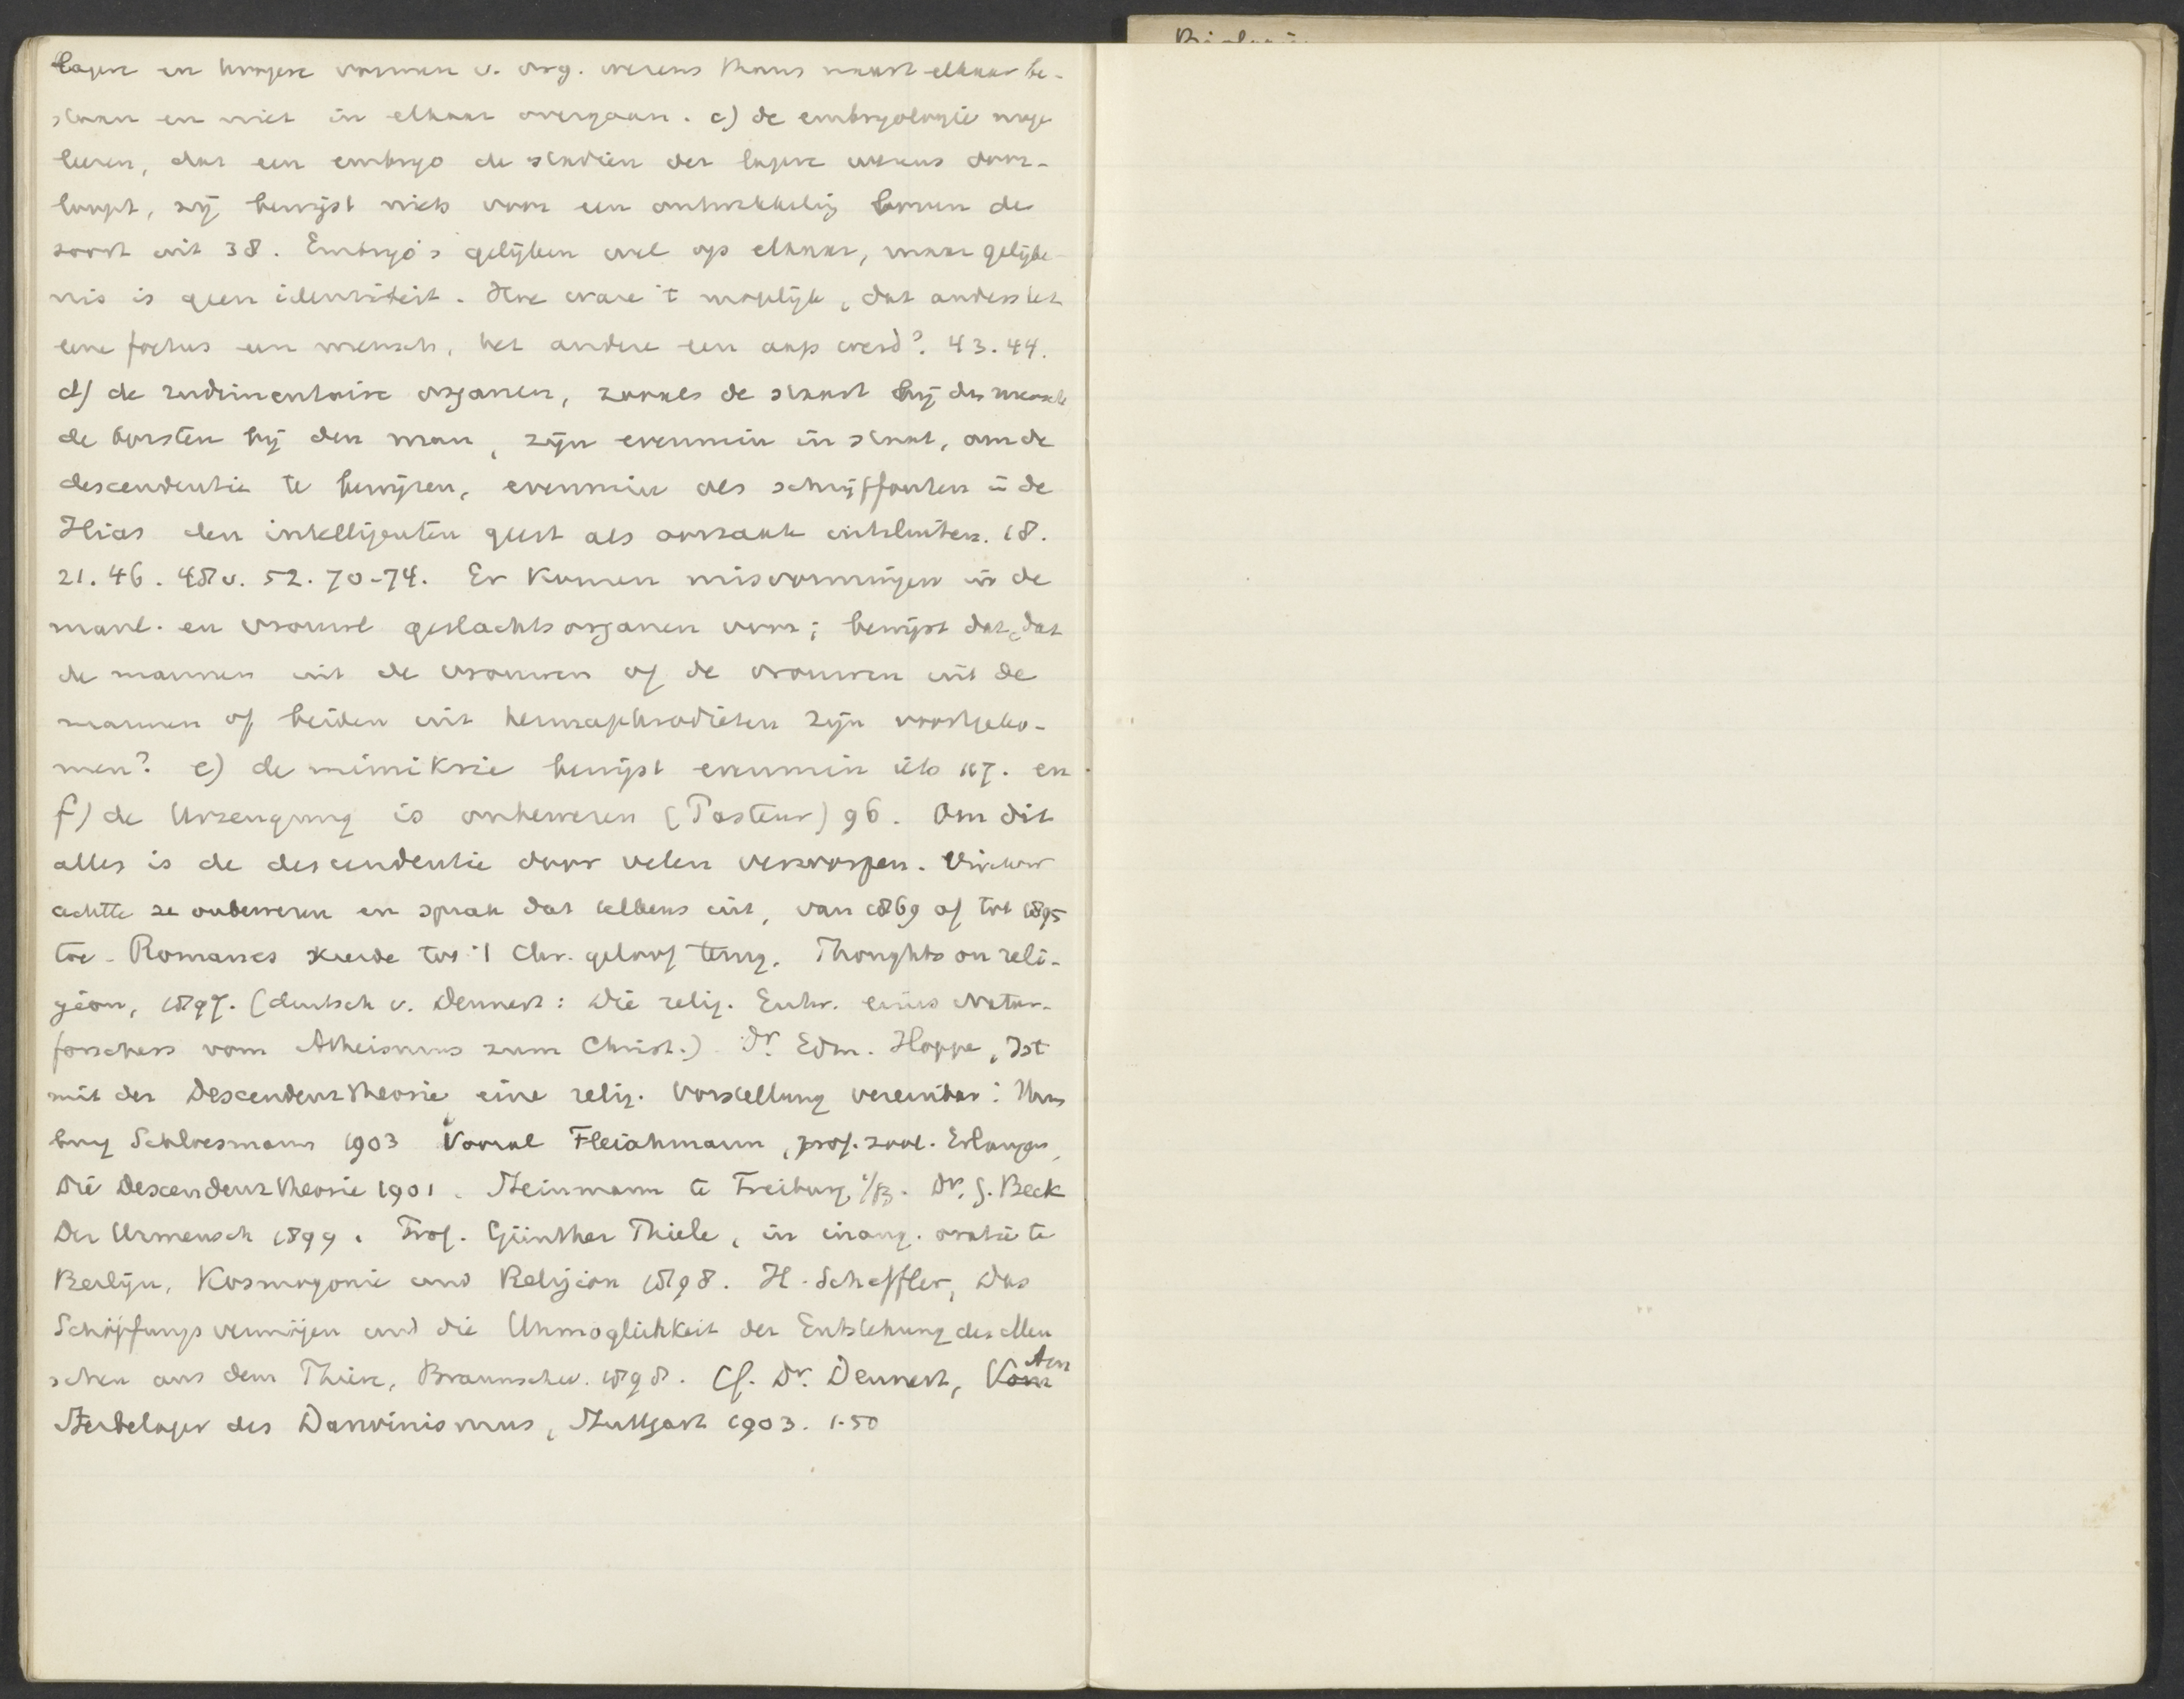 lagere en hoogere vormen v. org. wezens thans naast elkaar be-
staan en niet in elkaar overgaan. c) de embryologie moge
leeren, dat een embryo de stadien der lagere wezens door-
loopt, zij bewijst niets voor een ontwikkelig boven de
soort uit 38. Embryo's gelijken wel op elkaar, maar gelijke-
nis is geen identiteit. Hoe ware 't mogelijk, dat anders het
eene foetus een mensch, het andere een aap werd? 43.44.
d) de rudimentaire organen, zooals de staart bij den mensch
de borsten bij den man, zijn evenmin in staat, om de
descendentie te bewijzen, evenmin als schrijffouten in de
Ilias den intelligenten geest als oorzaak uitsluiten. 18.
21. 46. 48v. 52. 70-74. Er komen misvormingen in de
manl. en vrouwel geslachtsorganen voor; bewijst dat, dat
de mannen uit de vrouwen of de vrouwen uit de
mannen of beiden uit hermaphrodieten zijn voortgeko-
men? e) de mimikrie bewijst evenmin iets 117. en
f) de Urzeugung is onbewezen (Pasteur) 96. Om dit
alles is de descendentie door velen verworpen. Virchow
achtte ze onbewezen en sprak dat telkens uit, van 1869 af tot 1895
toe. Romanes keerde tot 't Chr. geloof terug. Thoughts on reli-
gion, 1897. (deutsch v. Dennert: Die relig. Entw. eines Natur-
forschers vom Atheismus zum Christ.) Dr. Edm. Hoppe, Ist
mit der Descendenztheorie eine relig. Vorstellung vereinbar: Ham
burg Schloesmann 1903 Vooral Fleischmann, prof. zool. Erlangen,
Die Descendenztheorie 1901. Steinmann te Freiburg i/B. Dr. G. Beck
Der Urmensch 1899. Prof. Günther Thiele, in inaug. oratie te
Berlijn, Kosmogonie und Religion 1898. H. Scheffler, Das
Schöpfungsvermögen und die Unmöglichkeit der Entstehung des Men
schen aus dem Thiere, Braunschw. 1898. Cf. Dr. Dennert, Vom Am
Sterbelager des Darwinismus, Stuttgart 1903. 1.50